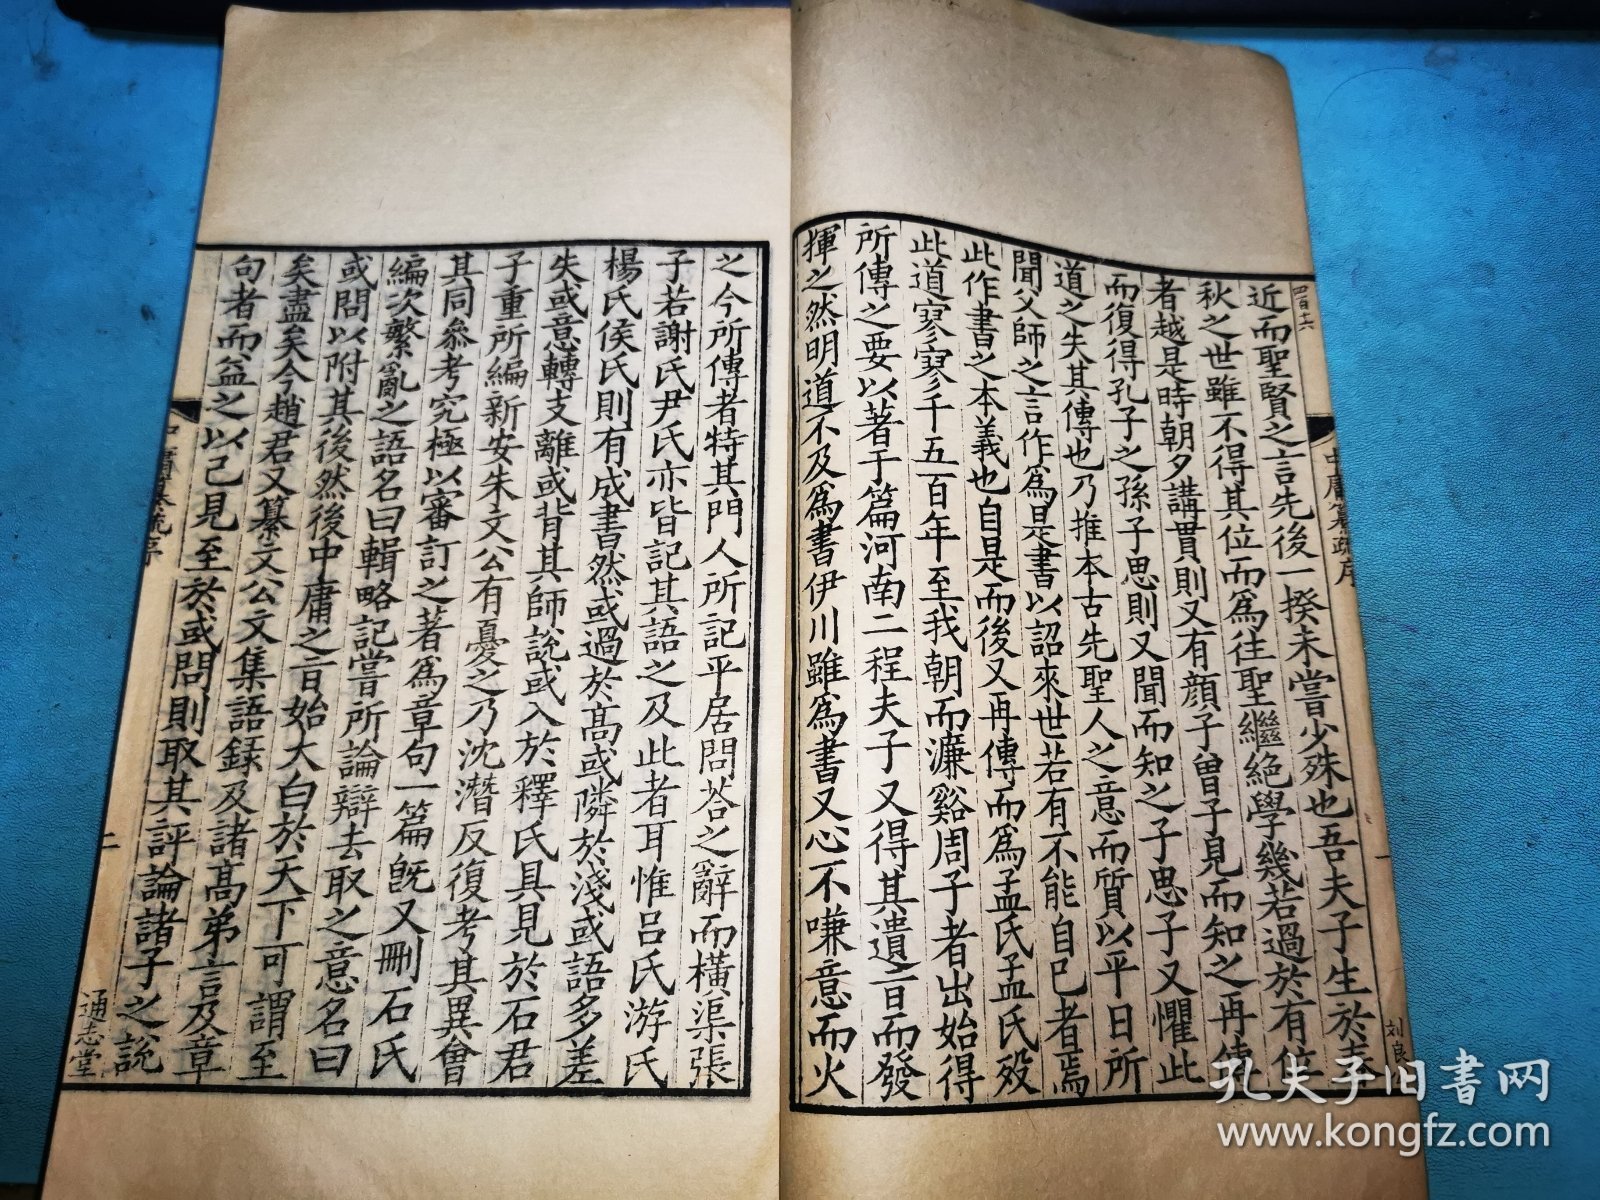 四百十六
近而聖賢之言先後一揆未嘗少殊也吾夫子生於春
秋之世雖不得其位而爲往聖繼絕學幾若過於有位
者越是時朝夕講貫則又有顔子曾子見而知之再傳
而復得孔子之孫子思則又聞而知之子思子又懼此
道之失其傳也乃推本古先聖人之意而質以平日所
聞父師之言作爲是書以詔來世若有不能自已者焉
此作書之本義也自是而後又再傳而爲孟氏孟氏歿
此道寥寥千五百年至我朝而濂谿周子者出始得
所傳之要以著于篇河南二程夫子又得其遺言而發
揮之然明道不及爲書伊川雖爲書又心不嗛意而火
一
刘良
之今所傳者特其門人所記平居問荅之辭而橫渠張
子若謝氏尹氏亦皆記其語之及此者耳惟吕氏游氏
楊氏侯氏則有成書然或過於髙或隣於淺或語多差
失或意轉支離或背其師說或入於釋氏具見於石君
子重所編新安朱文公有憂之乃沈潛反復考其異會
其同叅考究極以審訂之著爲章句一篇旣又刪石氏
編次繁亂之語名曰輯略記嘗所論辯去取之意名曰
或問以附其後然後中庸之旨始大白於天下可謂至
矣盡矣今趙君又纂文公文集語録及諸髙弟言及章
句者而益之以己見至於或問則取其評論諸子之說
二
通志堂
孔夫子旧書网
www.kongfz.com